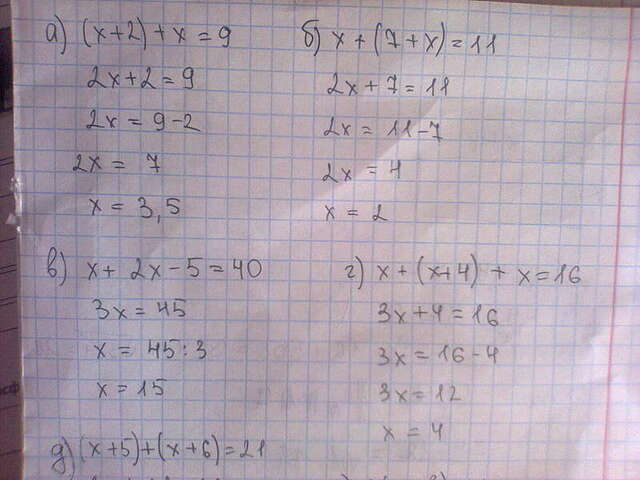 а) (x+2)+x=9
2x+2=9
2x=9-2
2x=7
x=3,5
б) x+(7+x)=11
2x+7=11
2x=11-7
2x=4
x=2
в) x+2x-5=40
3x=45
x=45:3
x=15
г) x+(x+4)+x=16
3x+4=16
3x=16-4
3x=12
x=4
д) (x+5)+(x+6)=21